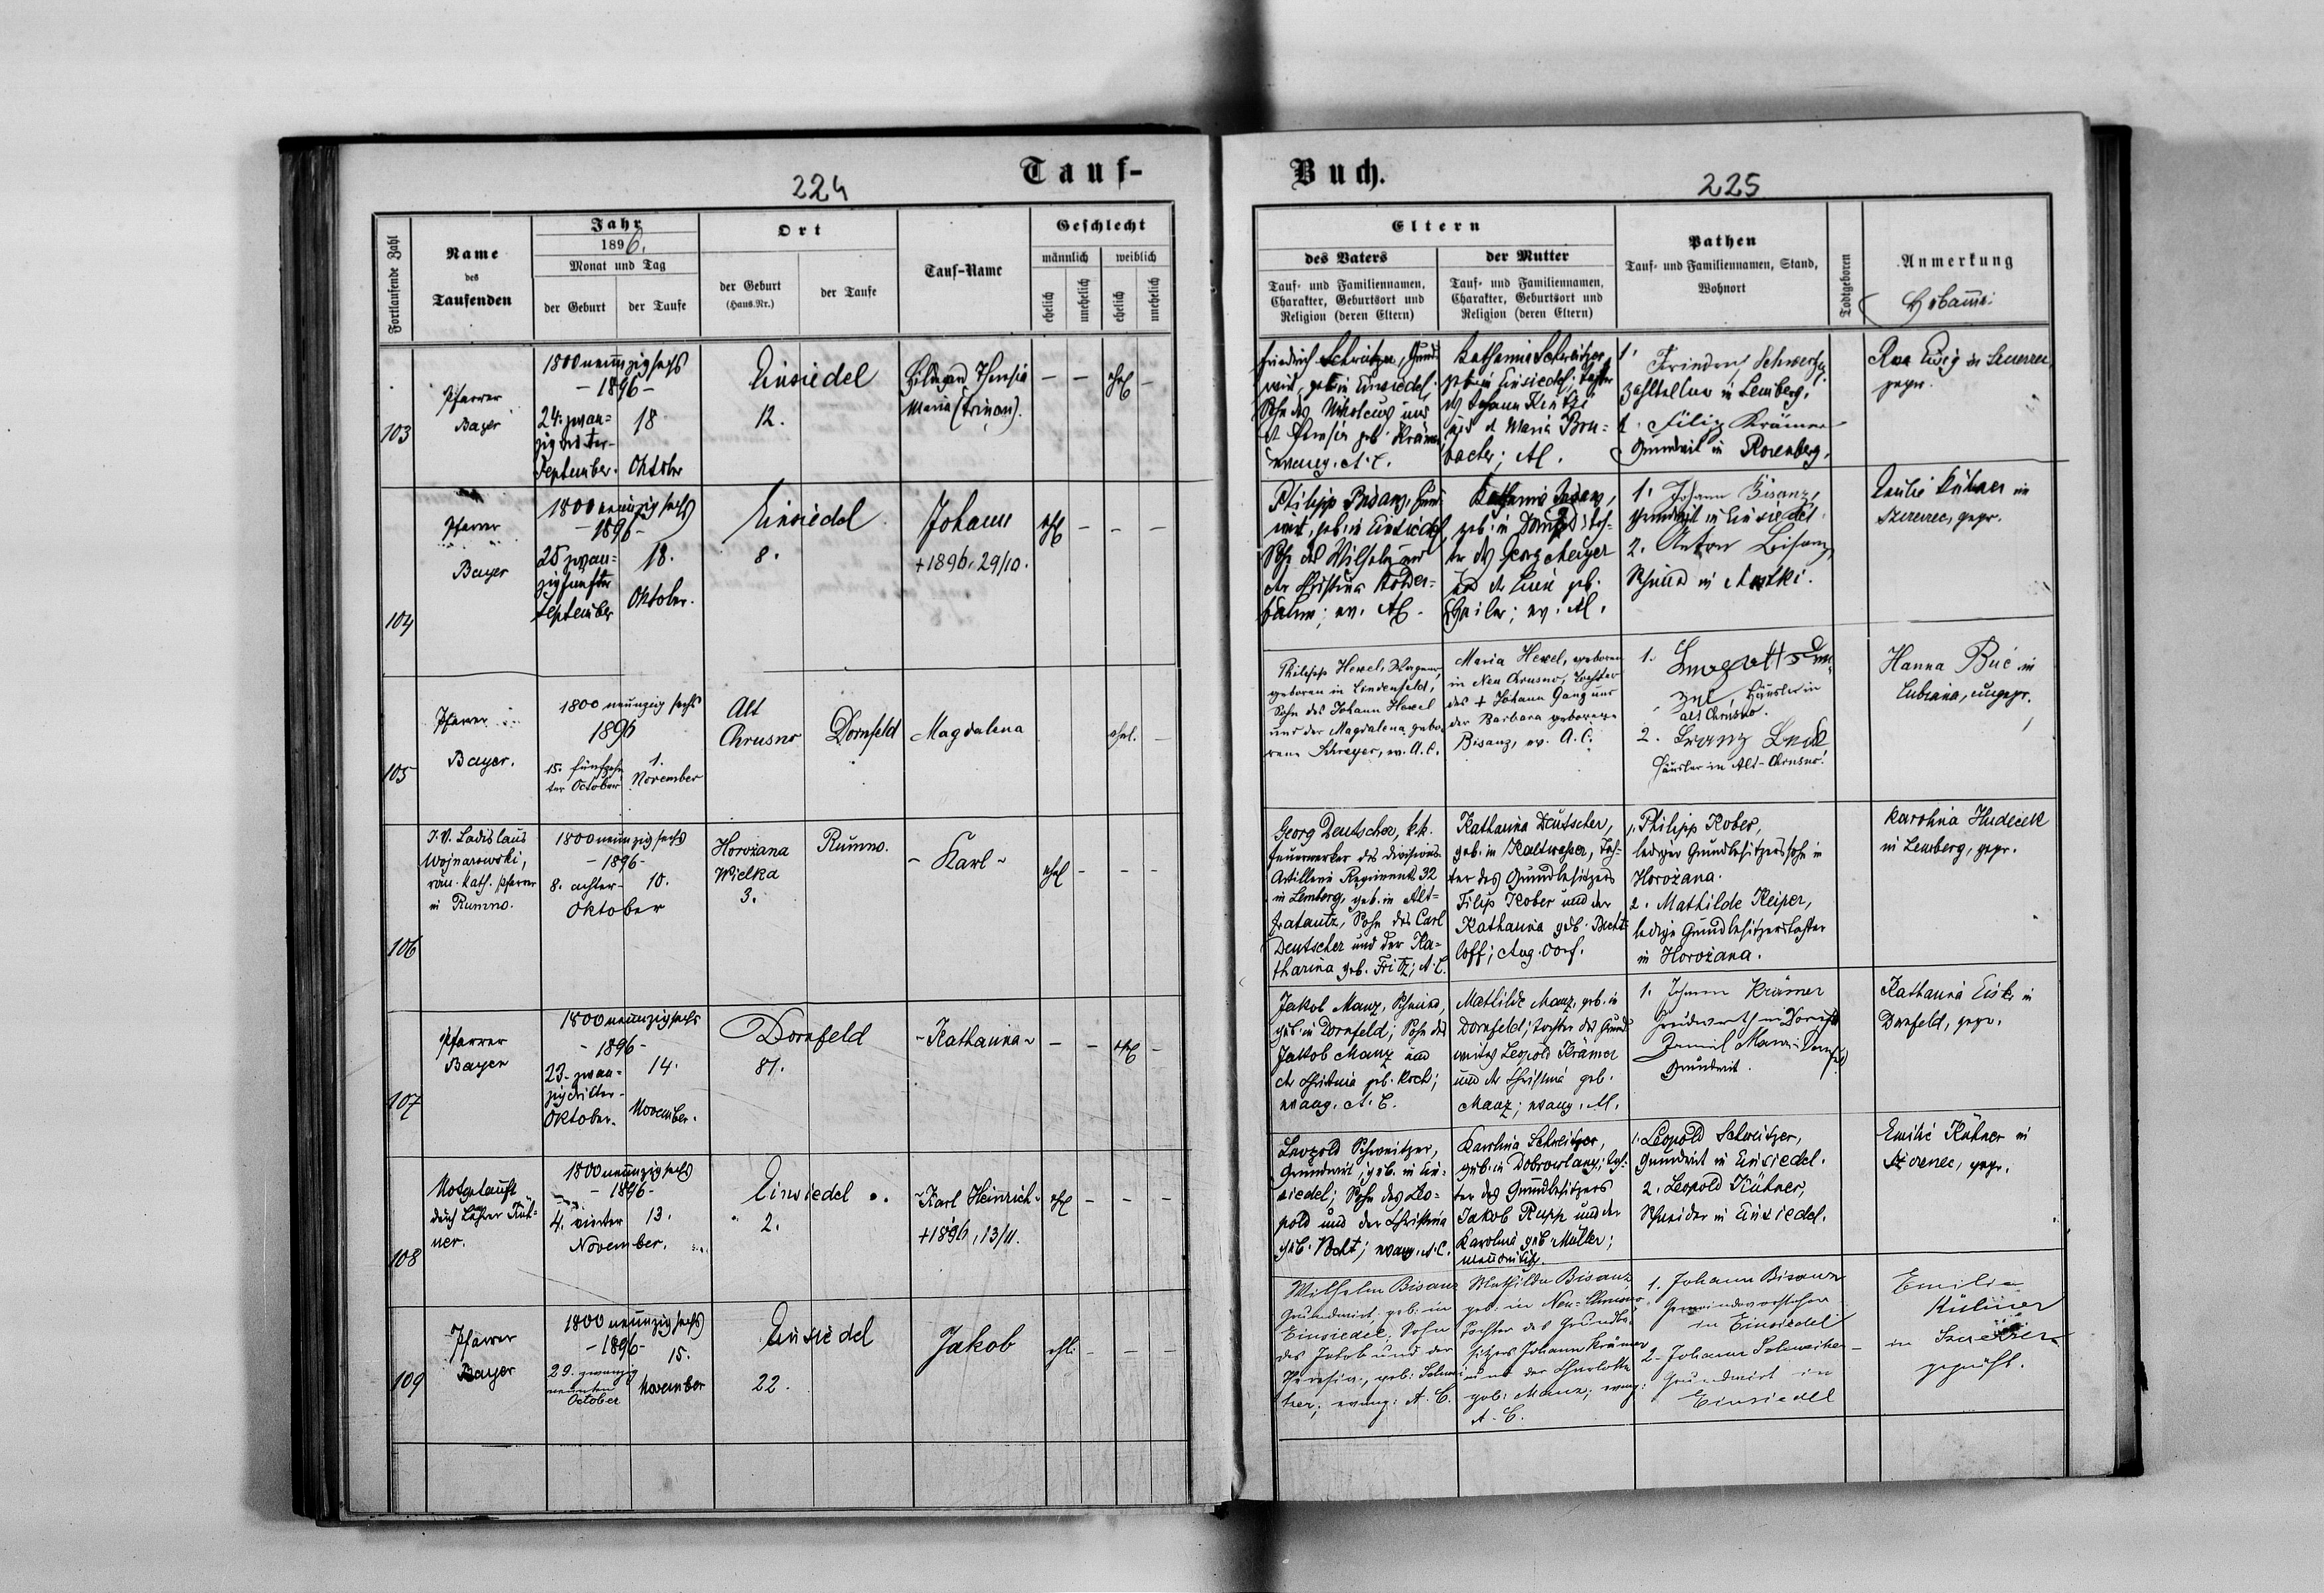 Tauf-
224
Fortlaufende Zahl
Name
des
Taufenden
Jahr
1896.
Monat und Tag
der Geburt
der Taufe
Ort
der Geburt
(Haus-Nr.)
der Taufe
Tauf-Name
Geschlecht
männlich
weiblich
ehelich
unehelich
ehelich
unehelich
103
Pfarrer
Bayer
1800 neunzig sechs
- 1896 -
24. zwan-
zig vierter
September.
18
Oktober
Einsiedel
12.
Theresia
Maria
- - ehel -
104
Pfarrer
Bayer
1800 neunzig sechs
- 1896 -
25 zwan-
zig fünfter
September
18.
Oktober.
Einsiedel
8.
Johann
+ 1896, 29/10.
ehel - - -
105
Pfarrer
Bayer.
1800 neunzig sechs
1896
15. fünfzehn
ter October
1.
November
Alt
Chrusno
Dornfeld
Magdalena
ehel. -
106
I. V. Ladislaus
Wojnarowski,
röm. kath. Pfarrer
in Rumno.
1800 neunzig sechs
- 1896 -
8. achter
10.
Oktober
Horożana
Wielka
3.
Rumno.
- Karl -
ehel - - -
107
Pfarrer
Bayer
1800 neunzig sechs
- 1896 -
23. zwan-
zig dritter
Oktober.
14.
November.
Dornfeld
81.
- Katharina -
- - ehel -
108
Notgetauft
durch Lehrer Küh-
ner.
1800 neunzig sechs
- 1896 -
4. vierter
13.
November.
Einsiedel
2.
- Karl Heinrich -
+ 1896, 13/11.
ehel - - -
109
Pfarrer
Bayer
1800 neunzig sechs
- 1896 -
29. zwanzig
neunten
October
15.
November
Einsiedel
22.
Jakob
ehl. - - -
Buch.
225
Eltern
des Vaters
Tauf- und Familiennamen,
Charakter, Geburtsort und
Religion (deren Eltern)
der Mutter
Tauf- und Familiennamen,
Charakter, Geburtsort und
Religion (deren Eltern)
Pathen
Tauf- und Familiennamen, Stand,
Wohnort
Todtgeboren
Anmerkung
Friedrich Schweitzer, Grund-
wirt, geb. in Einsiedel,
Sohn des Nikolaus und
d. Theresia geb. Krämer,
evang. A. C.
Katharina Schweitzer,
geb. in Einsiedel; Tochter
des Johann
und d. Maria Bru-
bacher; AC.
1. Friedrich
Zahlkellner in Lemberg.
2. Filip Krämer
Grundwirt in Rosenberg.
Philipp Bisanz, Grund-
wirt, geb. in Einsiedel,
Sohn des Wilhelm und
der Christina Koder-
; ev. AC.
Katharina Bisanz,
geb. in Dornfeld; Toch-
ter des Georg Meyer
und d. geb.
; ev. AC.
1. Johann Bisanz,
Grundwirt in Einsiedel.
2. Anton Bisanz
Schmied in
Emilie Kühner in
Szczerzec, gepr.
Philipp Hexel, Wagner,
geboren in Lindenfeld,
Sohn des Johann Hexel
und der Magdalena gebo-
rene Schreyer, ev. A. C.
Maria Hexel, geboren
in Neu Chrusno, Tochter
des + Johann Ganz und
der Barbara geborene
Bisanz, ev. A. C.
1.
Häusler in
alt Chrusno.
2. Franz
Häusler in Alt-Chrusno.
Hanna Buć in
Lubiana, ungepr.
Georg Deutscher, k.k.
Feuerwerker des Divisions-
Artillerie Regiments 32
in Lemberg, geb. in Alt-
fratautz, Sohn des Carl
Deutscher und der Ka-
tharina geb. Fritz; A. C.
Katharina Deutscher,
geb. in Kaltwasser, Toch-
ter des Grundbesitzers
Filip Kober und der
Katharina geb. Becht-
loff; Aug. Conf.
1. Philipp Kober,
lediger Grundbesitzerssohn in
Horożana.
2. Mathilde Keiper,
ledige Grundbesitzerstochter
in Horożana.
Karolina Hudecek
in Lemberg, gepr.
Jakob Manz, Schmied,
geb. in Dornfeld; Sohn des
Jakob Manz und
der Christina geb. Koch;
evang. A. C.
Mathilde Manz, geb. in
Dornfeld; Tochter des Grund-
wirtes Leopold Krämer
und der Christina geb.
Manz; evang. AC.
1. Johann Krämer
Grundwirth in Dornfeld
Manz Dornfeld
Grundwirt.
Katharina in
Dornfeld, gepr.
Leopold Schweitzer,
Grundwirt, geb. in Ein-
siedel; Sohn des Leo-
pold und der Christina
geb. ; evang. A. C.
Karolina Schweitzer,
geb. in Dobrowlany; Toch-
ter des Grundbesitzers
Jakob Rupp und der
Karolina geb. Müller;
mennonitisch.
1. Leopold Schweitzer,
Grundwirt in Einsiedel.
2. Leopold Kühner,
Schneider in Einsiedel.
Emilie Kühner in
gepr.
Wilhelm Bisanz
Grundwirt geb: in
Einsiedel; Sohn
des Jakob und der
Theresia, geb: Schwei-
tzer; evang: A. C.
Mathilde Bisanz
geb: in Neu-Chrusno
Tochter des Grundbe-
sitzers Johann Krämer
und der Charlotte
geb: Manz; evang:
A. C.
1. Johann Bisanz
Gemeindevorsteher
in Einsiedel
2. Johann Schweitzer
Grundwirt in
Einsiedel
Emilie
Kühner
in
geprüft.